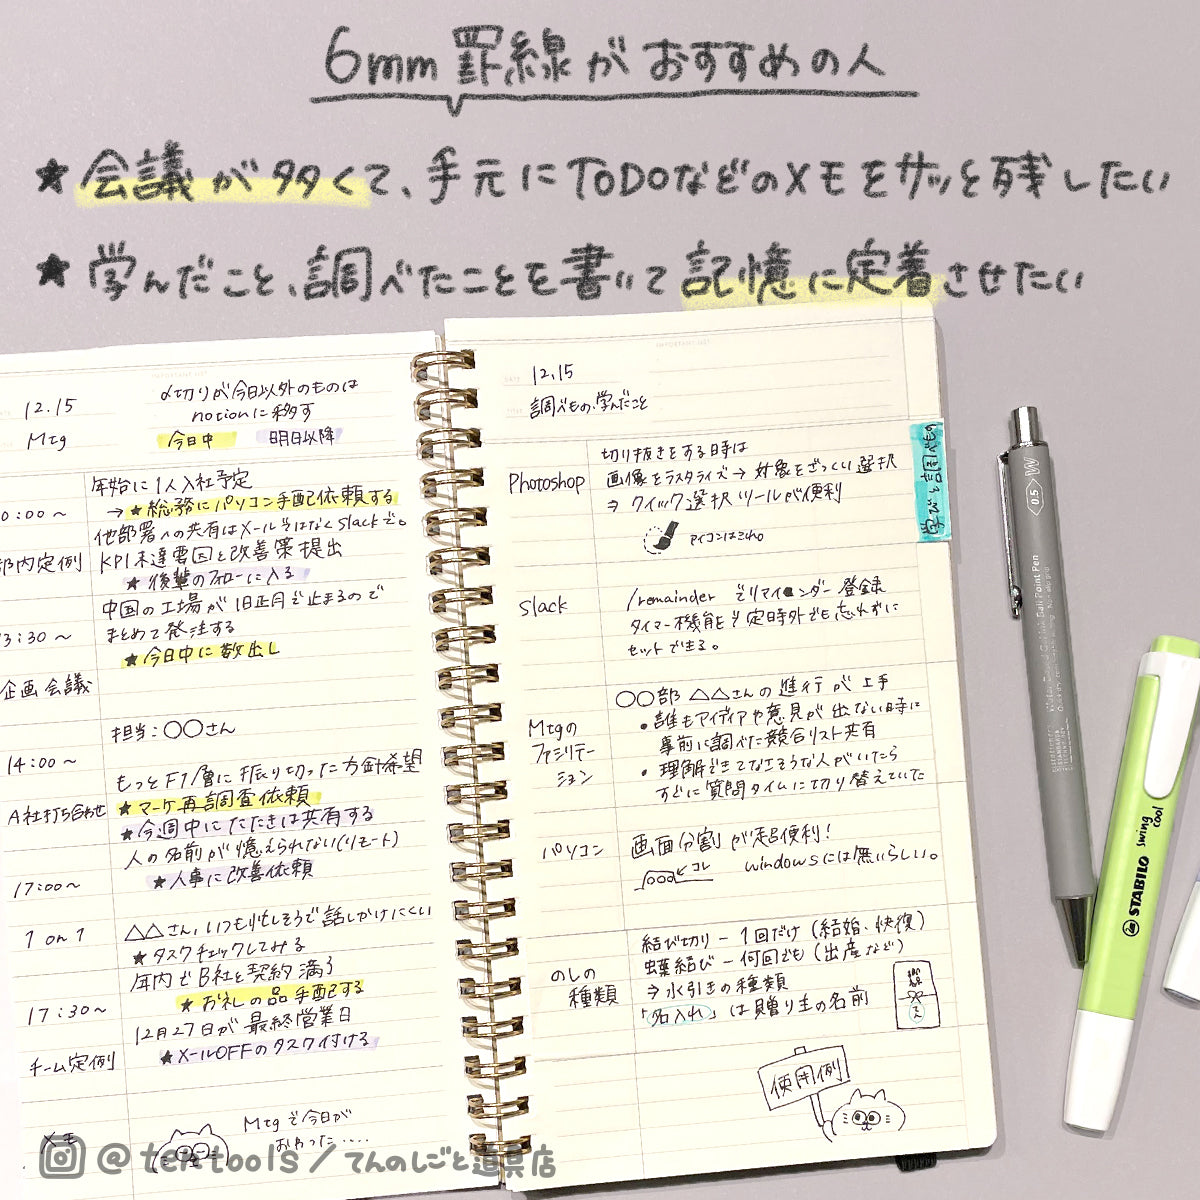 6mm 罫線がおすすめの人
★会議が多くて、手元にToDoなどのメモをサッと残したい
★学んだこと、調べたことを書いて記憶に定着させたい
IMPORTANT LIST
12.15
〆切りが今日以外のものは
notionに移す
Mtg
今日中 明日以降
年始に1人入社予定
→★総務にパソコン手配依頼する
0:00～
他部署への共有はメールではなくslackで。
部内定例
KPI未達要因と改善策提出
★後輩のフォローに入る
中国の工場が旧正月で止まるので
3:30～
まとめて発注する
★今日中に数出し
企画会議
担当:○○さん
14:00～
もっとF1層に振り切った方針希望
A社打ち合わせ
★マーケ再調査依頼
★今週中にたたきは共有する
人の名前が憶えられない(リモート)
17:00～
★人事に改善依頼
1on1
△△さん、いつも忙しそうで話しかけにくい
★タスクチェックしてみる
年内でB社と契約満了
★お礼の品手配する
17:30～
12月27日が最終営業日
チーム定例
★メールOFFのタスク付ける
メモ
Mtgで今日が
おわった....
IMPORTANT LIST
DATE
12.15
TITLE
調べもの、学んだこと
学びと調べもの
Photoshop
切り抜きをする時は
画像をラスタライズ→対象をざっくり選択
⇒クイック選択ツールが便利
アイコンはこれ
slack
/remainderでリマインダー登録
タイマー機能で定時外でも忘れずに
セットできる。
Mtgの
ファシリテー
ション
○○部 △△さんの進行が上手
・誰もアイディアや意見が出ない時に
事前に調べた競合リスト共有
・理解できてなさそうな人がいたら
すぐに質問タイムに切り替えていた
パソコン
画面分割が超便利!
←コレ
windowsには無いらしい。
のしの
種類
結び切り－1回だけ(結婚、快復)
蝶結び－何回でも(出産など)
⇒水引きの種類
「名入れ」は贈り主の名前
使用例
0.5 W
Ball Point Pen
STABILO swing cool
@ten_tools/てんのしごと道具店